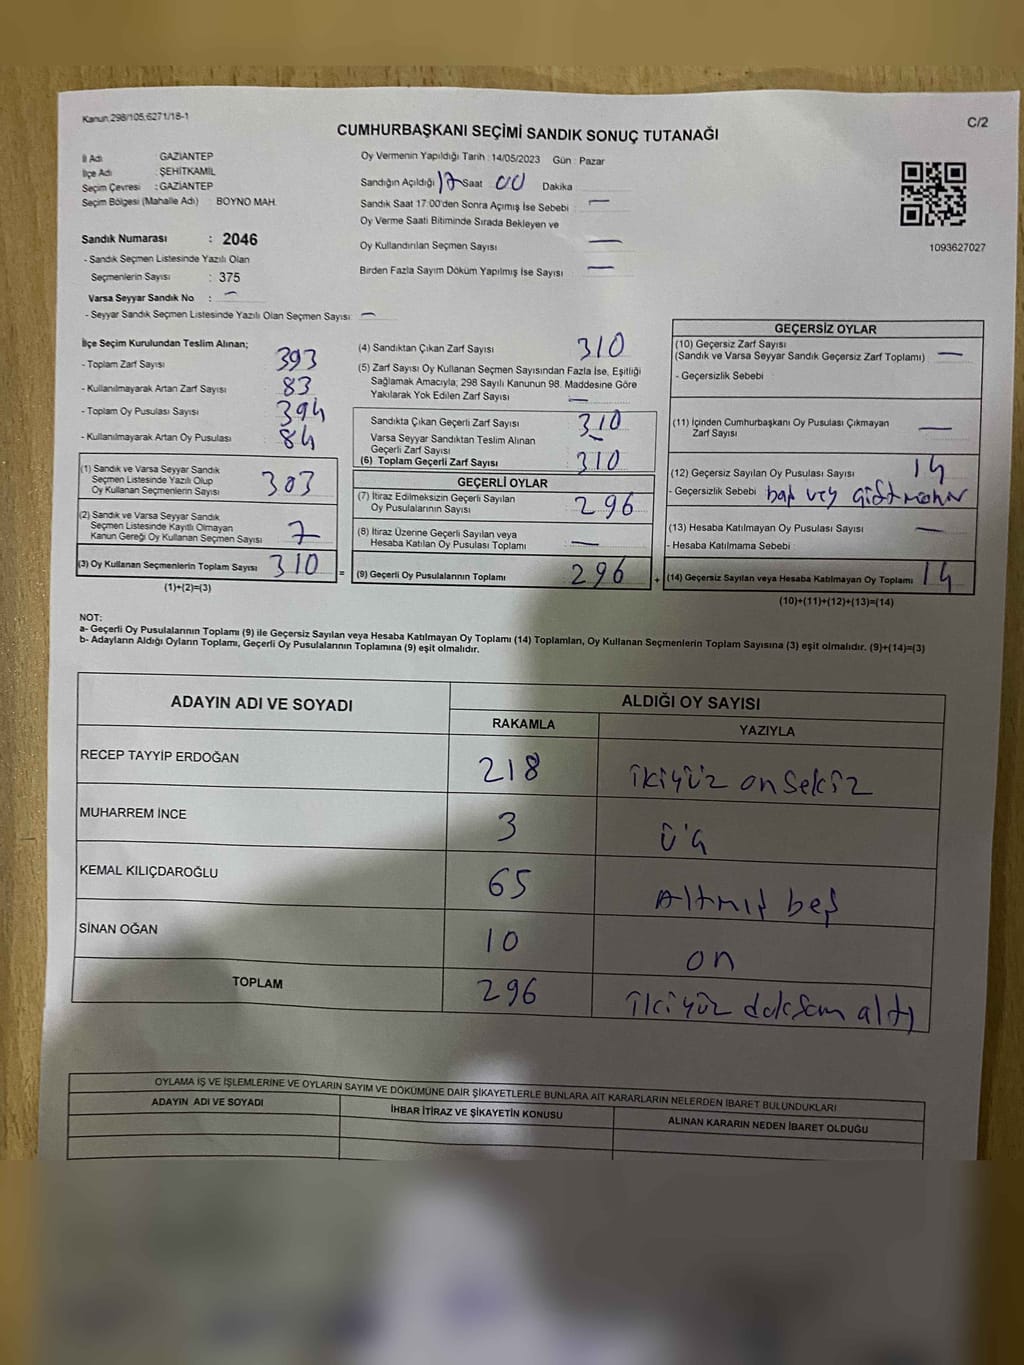 Kanun.298/105,6271/18-1
C/2
CUMHURBAŞKANI SEÇİMİ SANDIK SONUÇ TUTANAĞI
İl Adı : GAZİANTEP
İlçe Adı : ŞEHİTKAMİL
Seçim Çevresi : GAZİANTEP
Seçim Bölgesi (Mahalle Adı) : BOYNO MAH.
Sandık Numarası : 2046
- Sandık Seçmen Listesinde Yazılı Olan
Seçmenlerin Sayısı : 375
Varsa Seyyar Sandık No : —
- Seyyar Sandık Seçmen Listesinde Yazılı Olan Seçmen Sayısı: —
Oy Vermenin Yapıldığı Tarih : 14/05/2023 Gün : Pazar
Sandığın Açıldığı 17 Saat 00 Dakika
Sandık Saat 17:00'den Sonra Açımış İse Sebebi : —
Oy Verme Saati Bitiminde Sırada Bekleyen ve
Oy Kullandırılan Seçmen Sayısı —
Birden Fazla Sayım Döküm Yapılmış İse Sayısı : —
1093627027
İlçe Seçim Kurulundan Teslim Alınan;
- Toplam Zarf Sayısı 393
- Kullanılmayarak Artan Zarf Sayısı 83
- Toplam Oy Pusulası Sayısı 394
- Kullanılmayarak Artan Oy Pusulası 84
(1) Sandık ve Varsa Seyyar Sandık
Seçmen Listesinde Yazılı Olup
Oy Kullanan Seçmenlerin Sayısı 303
(2) Sandık ve Varsa Seyyar Sandık
Seçmen Listesinde Kayıtlı Olmayan
Kanun Gereği Oy Kullanan Seçmen Sayısı 7
(3) Oy Kullanan Seçmenlerin Toplam Sayısı 310 =
(1)+(2)=(3)
(4) Sandıktan Çıkan Zarf Sayısı 310
(5) Zarf Sayısı Oy Kullanan Seçmen Sayısından Fazla İse, Eşitliği
Sağlamak Amacıyla; 298 Sayılı Kanunun 98. Maddesine Göre
Yakılarak Yok Edilen Zarf Sayısı —
Sandıkta Çıkan Geçerli Zarf Sayısı 310
Varsa Seyyar Sandıktan Teslim Alınan
Geçerli Zarf Sayısı —
(6) Toplam Geçerli Zarf Sayısı 310
GEÇERLİ OYLAR
(7) İtiraz Edilmeksizin Geçerli Sayılan
Oy Pusulalarının Sayısı 296
(8) İtiraz Üzerine Geçerli Sayılan veya
Hesaba Katılan Oy Pusulası Toplamı —
(9) Geçerli Oy Pusulalarının Toplamı 296 +
GEÇERSİZ OYLAR
(10) Geçersiz Zarf Sayısı
(Sandık ve Varsa Seyyar Sandık Geçersiz Zarf Toplamı) —
- Geçersizlik Sebebi
(11) İçinden Cumhurbaşkanı Oy Pusulası Çıkmayan
Zarf Sayısı —
(12) Geçersiz Sayılan Oy Pusulası Sayısı 14
- Geçersizlik Sebebi
(13) Hesaba Katılmayan Oy Pusulası Sayısı —
- Hesaba Katılmama Sebebi
(14) Geçersiz Sayılan veya Hesaba Katılmayan Oy Toplamı 14
(10)+(11)+(12)+(13)=(14)
NOT:
a- Geçerli Oy Pusulalarının Toplamı (9) ile Geçersiz Sayılan veya Hesaba Katılmayan Oy Toplamı (14) Toplamları, Oy Kullanan Seçmenlerin Toplam Sayısına (3) eşit olmalıdır. (9)+(14)=(3)
b- Adayların Aldığı Oyların Toplamı, Geçerli Oy Pusulalarının Toplamına (9) eşit olmalıdır.
ADAYIN ADI VE SOYADI ALDIĞI OY SAYISI
RAKAMLA YAZIYLA
RECEP TAYYİP ERDOĞAN 218 ikiyüz onsekiz
MUHARREM İNCE 3 üç
KEMAL KILIÇDAROĞLU 65 Altmış beş
SİNAN OĞAN 10 on
TOPLAM 296 ikiyüz doksan altı
OYLAMA İŞ VE İŞLEMLERİNE VE OYLARIN SAYIM VE DÖKÜMÜNE DAİR ŞİKAYETLERLE BUNLARA AİT KARARLARIN NELERDEN İBARET BULUNDUKLARI
ADAYIN ADI VE SOYADI İHBAR İTİRAZ VE ŞİKAYETİN KONUSU ALINAN KARARIN NEDEN İBARET OLDUĞU